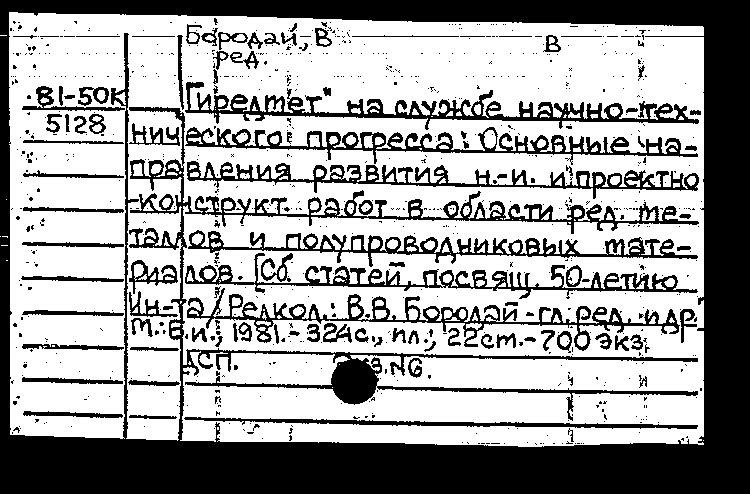 Бородай, В
В
ред.
81-50К
Гиредмет" на службе научно-тех-
5128
нического прогресса: Основные на-
правления развития н.-и. и проектно
-конструкт. работ в области ред. ме-
таллов и полупроводниковых мате-
риалов. [Сб. статей, посвящ. 50-летию
Ин-та / Редкол.: В.В. Бородай - гл. ред. и др.
М.: Б.и., 1981.- 324с., ил.; 22cm.- 700 экз.
ДСП.